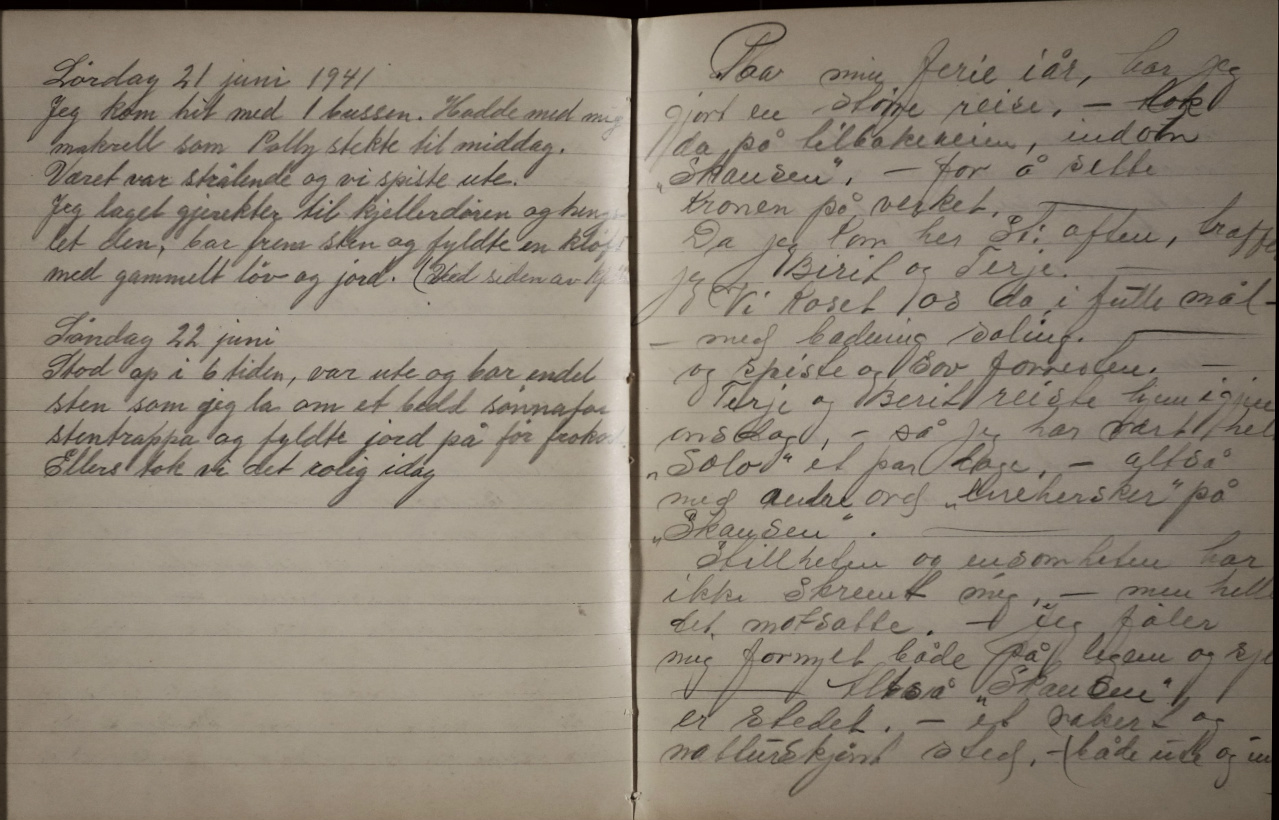 Lördag 21 juni 1941
Jeg kom hit med 1 bussen. Hadde med mig
makrell som Polly stekte til middag.
Været var strålende og vi spiste ute.
Jeg laget gjerekter til kjellerdören og heng-
let den, bar frem sten og fyldte en kløft
med gammelt löv og jord. (Ved siden av
Söndag 22 juni
Stod op i 6 tiden, var ute og bar endel
sten som jeg la om et bedd sönnafor
stentrappa og fyldte jord på för frokost.
Ellers tok vi det rolig idag
Paa min ferie iår, har jeg
gjort en större reise, — tok
da på tilbakeveien, indom
"Skansen", — for å sette
Kronen på verket. —
Da jeg kom her St. aften, traff
jeg Birit og Terje. —
Vi Koset os da i fulle mål —
— med badning soling. —
og spiste og Sov forresten. —
Terje og Berit reiste hjem igjen
onsdag, — så jeg har vært helt
"Solo" et par dage, — altså
med andre ord "Enehersker" på
"Skansen". —
Stillheten og ensomheten har
ikke Skremt mig, — men helt
det motsatte. — Jeg föler
mig fornyet både på legem og sjel
— Altså "Skansen",
er Stedet. — et vakert og
natturskjönt sted, — (både ute og in